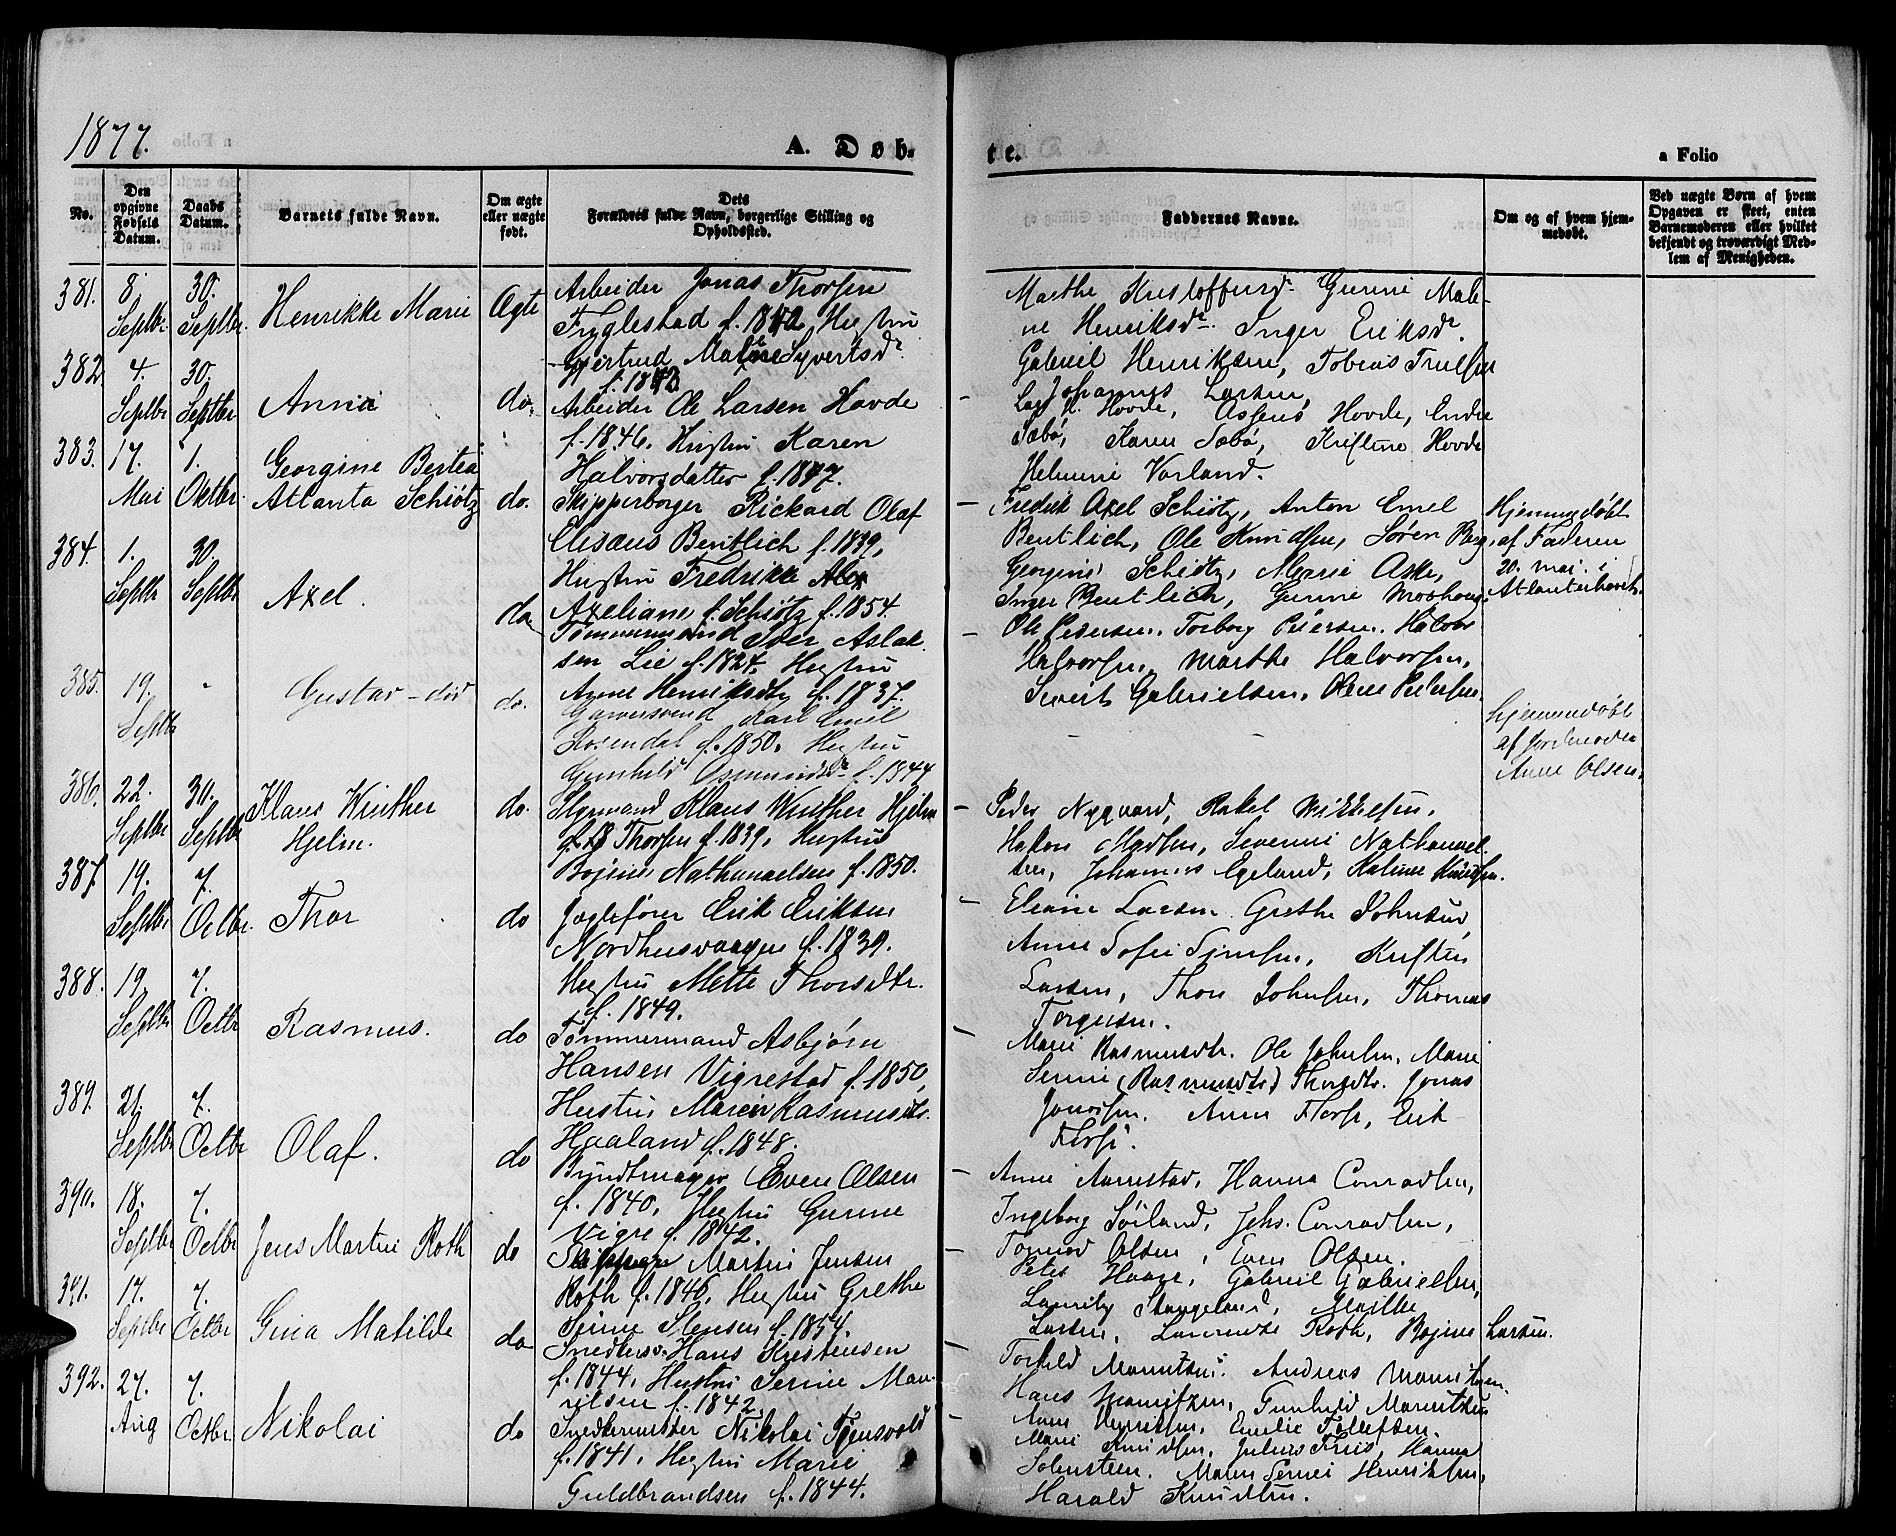 1877.
A. Døb-
te.
a Folio
No.
Den opgivne Fødsels Datum.
Daabs Datum.
Barnets fulde Navn.
Om ægte eller uægte født.
Dets Forældres fulde Navn, borgerlige Stilling og Opholdssted.
Faddernes Navne.
Om og af hvem hjemmedøbt.
Ved uægte Børn af hvem Opgaven er skeet, enten Barnemoderen eller hvilket bekjendt og troværdigt Medlem af Menigheden.
381. 8. Septbr. 30. Septbr. Henrikke Marie Ægte
Arbeider Jonas Thorsen
Fuglestad f. 1842, Hustru
Gjertrud Malene Syvertsdr.
f. 1843
Marthe Kristoffersd. Gunni Male-
ne Henriksdr. Inger Eriksdr.
Gabriel Henriksen, Tobias Trulsen
Johannes Larsen,
382. 4. Septbr 30. Septbr Anna do.
Arbeider Ole Larsen Hovde
f. 1846, Hustru Karen
Halvorsdatter f. 1847.
Lars Hovde, Hovde, Endre
Sæbø, Karen Sæbø, Kristine Hovde
Helmine Varland.
383. 17. Mai 1. Oktbr. Georgine Bertea
Atlanta Schiøtz do.
Skipperborger Rickard Olaf
Elisæus Bentlich f. 1839,
Hustru Fredrikke
Axeliane f. Schiøtz f. 1854.
Fredrik Axel Schiøtz, Anton Emil
Bentlich, Ole Knudsen, Søren Berg,
Georgine Schiøtz, Marie Aske,
Inger Bentlich, Gunni
Hjemmedøbt
af Faderen
20. Mai i
Atlanterhavet.
384. 1. Septbr 30. Septbr Axel. do
Tømmermand Iver Aslak-
sen Lie f. 1827. Hustru
Anne Henriksdtr f. 1837.
Ole Pedersen. Torborg Pedersen. Halvor
Halvorsen, Marthe Halvorsen,
Sivert Gabrielsen, Olene Pedersen.
385. 19. Septbr - Gustav - død do.
Garversvend Karl Emil
Rosendal f. 1850. Hustru
Gunhild Osmundsdr. f. 1844
Hjemmedøbt
af Jordmoder
Anne Olsen.
386. 22. Septbr 30. Septbr Klaus Winther
Hjelm. do.
Styrmand Klaus Winther Hjelm
Thorsen f. 1839, Hustru
Bojine Nathanaelsen f. 1850.
Peder Nygaard, Rakel Mikkelsen,
Hakon Madsen, Severine Nathanael-
sen, Johannes Egeland, Katrine Knudsen.
387. 19. Septbr 7. Octbr. Thor do
Jagtefører Erik Eriksen
Nordhusvaagen f. 1839.
Hustru Mette Thorsdtr.
f. 1849.
Larsen Grethe Johnsen,
Anne Sofie Simonsen, Kristen
Larsen, Thore Johnsen, Thomas
Torgersen.
388. 19. Septbr 7. Octbr Rasmus. do
Tømmermand Asbjørn
Hansen Vigrestad f. 1850,
Hustru Maren Rasmusdtr.
Haaland f. 1848.
Marie Rasmusdtr. Ole Johnsen, Marie
Serine (Rasmusdtr) Thorsdtr. Jonas
Jonassen. Anne Thorsen, Erik
389. 21. Septbr 7. Octbr Olaf. do
Bundtmager Even Olsen
f. 1840, Hustru Gunne
Vigre f. 1842.
Anne Aarrestad, Hanna Conradsen,
Ingeborg Søiland, Johs. Conradsen,
Tønnes Olsen, Even Olsen.
390. 18. Septbr 7. Octbr Jens Martin Roth do
Skipper Martin Jensen
Roth f. 1846, Hustru Grethe
Serine Stensen f. 1854.
Peter Haave, Gabriel Gabrielsen,
Lauritz Stangeland,
Larsen, Laurentse Roth, Bojine Larsen.
391. 17. Septbr 7. Octbr Gina Matilde do
Snedkersv. Hans Kristensen
f. 1844, Hustru Serine Mau-
ritzen f. 1842.
Torkild Mauritzen. Andreas Mauritzen.
Hans Mauritzen, Gunhild Mauritzen
Anne Henriksen, Emilie Tollefsen.
392. 27. Aug 7. Octbr. Nikolai do
Snedkermester Nikolai Tjensvold
f. 1841, Hustru Marie
Guldbrandsen f. 1844.
Marie Knudsen, Julius Friis, Hanna
Johnsteen. Maren Serine Henriksen,
Harald Knudsen.